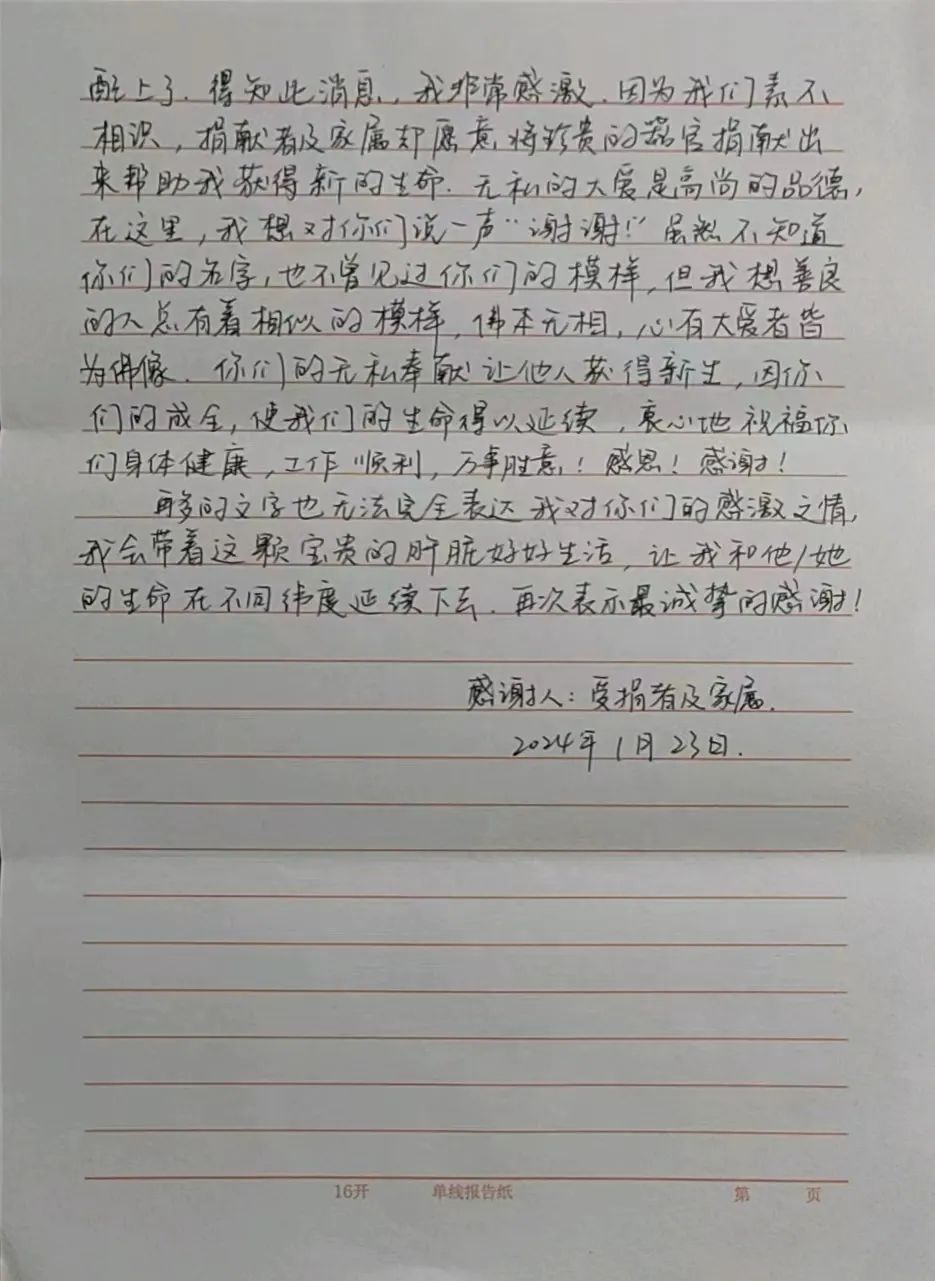 配上了.得知此消息,我非常感激.因为我们素不
相识,捐献者及家属却愿意将珍贵的器官捐献出
来帮助我获得新的生命.无私的大爱是高尚的品德,
在这里,我想对你们说一声“谢谢!”虽然不知道
你们的名字,也不曾见过你们的模样,但我想善良
的人总有着相似的模样,佛本无相,心有大爱者皆
为佛像.你们的无私奉献让他人获得新生,因你
们的成全,使我们的生命得以延续,衷心地祝福你
们身体健康,工作顺利,万事胜意!感恩!感谢!
再多的文字也无法完全表达我对你们的感激之情,
我会带着这颗宝贵的肝脏好好生活,让我和他/她
的生命在不同纬度延续下去.再次表示最诚挚的感谢!
感谢人:受捐者及家属.
2024年1月23日.
16开 单线报告纸 第 页